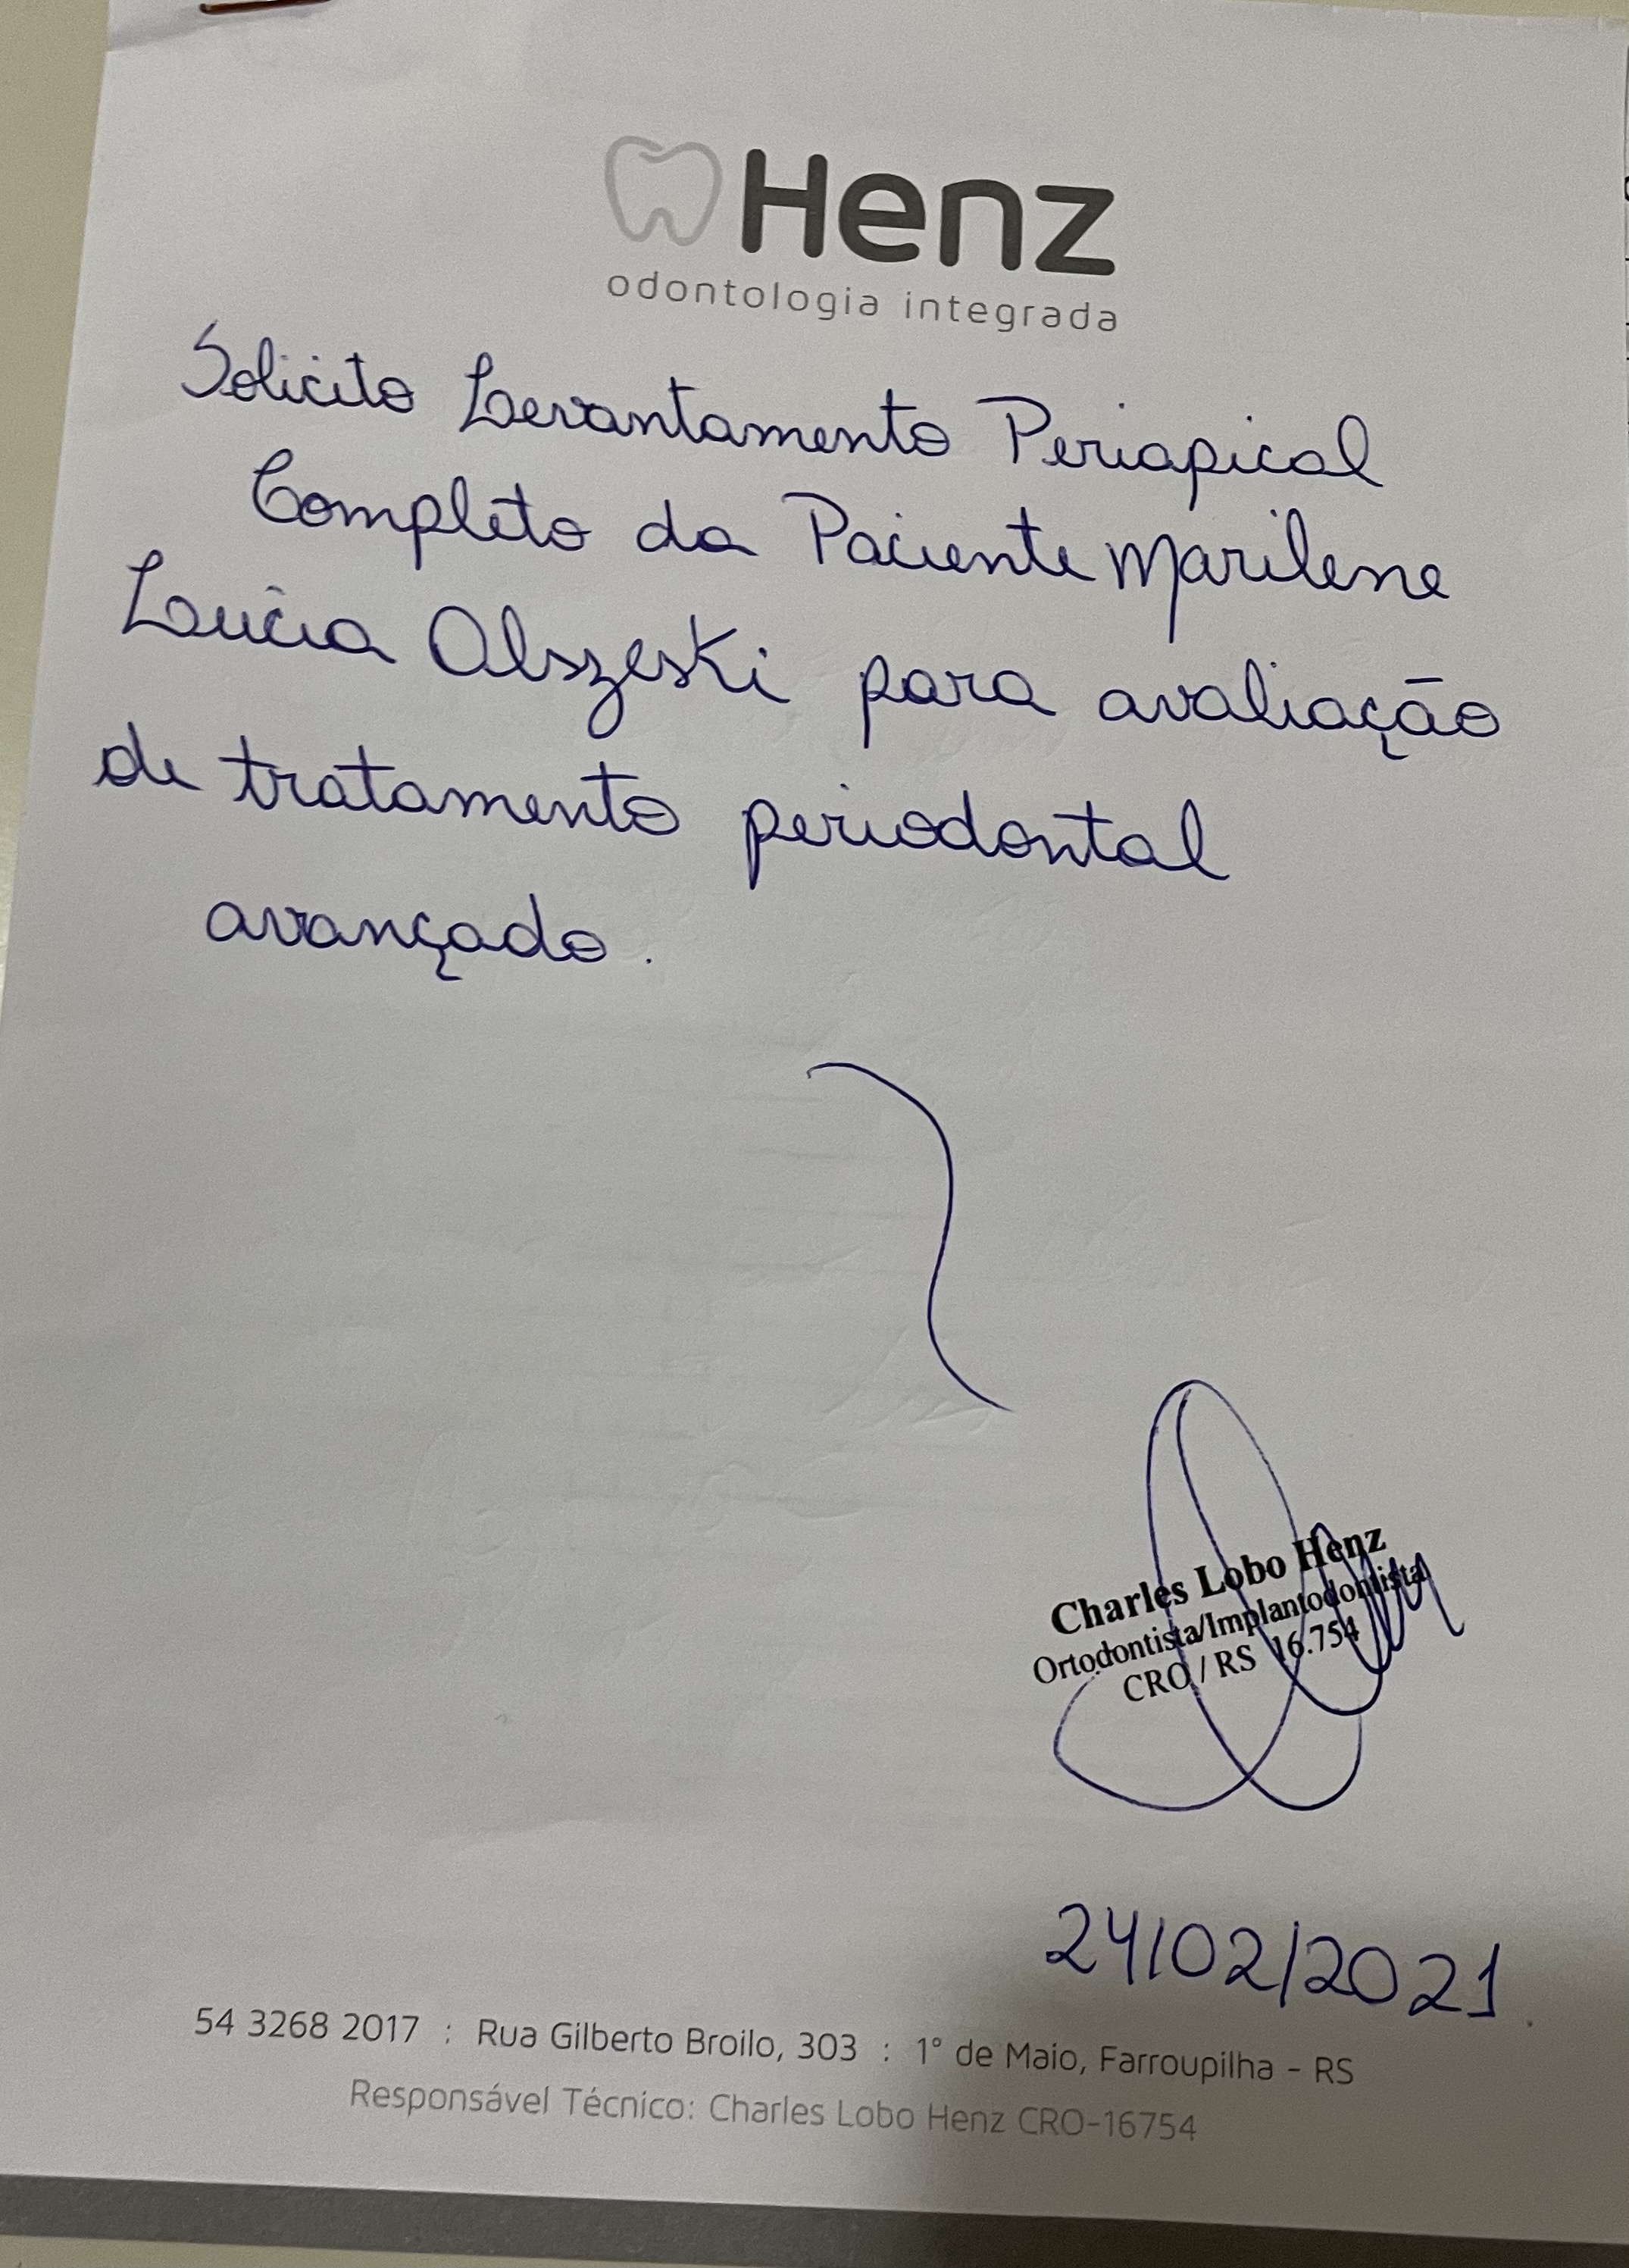 Henz
odontologia integrada
Solicito Levantamento Periapical
Completo da Paciente Marilene
Lucia Olszeski para avaliação
de tratamento periodontal
avançado.
Charles Lobo Henz
Ortodontista/Implantodontista
CRO / RS 16.754
24/02/2021
54 3268 2017 : Rua Gilberto Broilo, 303 : 1° de Maio, Farroupilha - RS
Responsável Técnico: Charles Lobo Henz CRO-16754